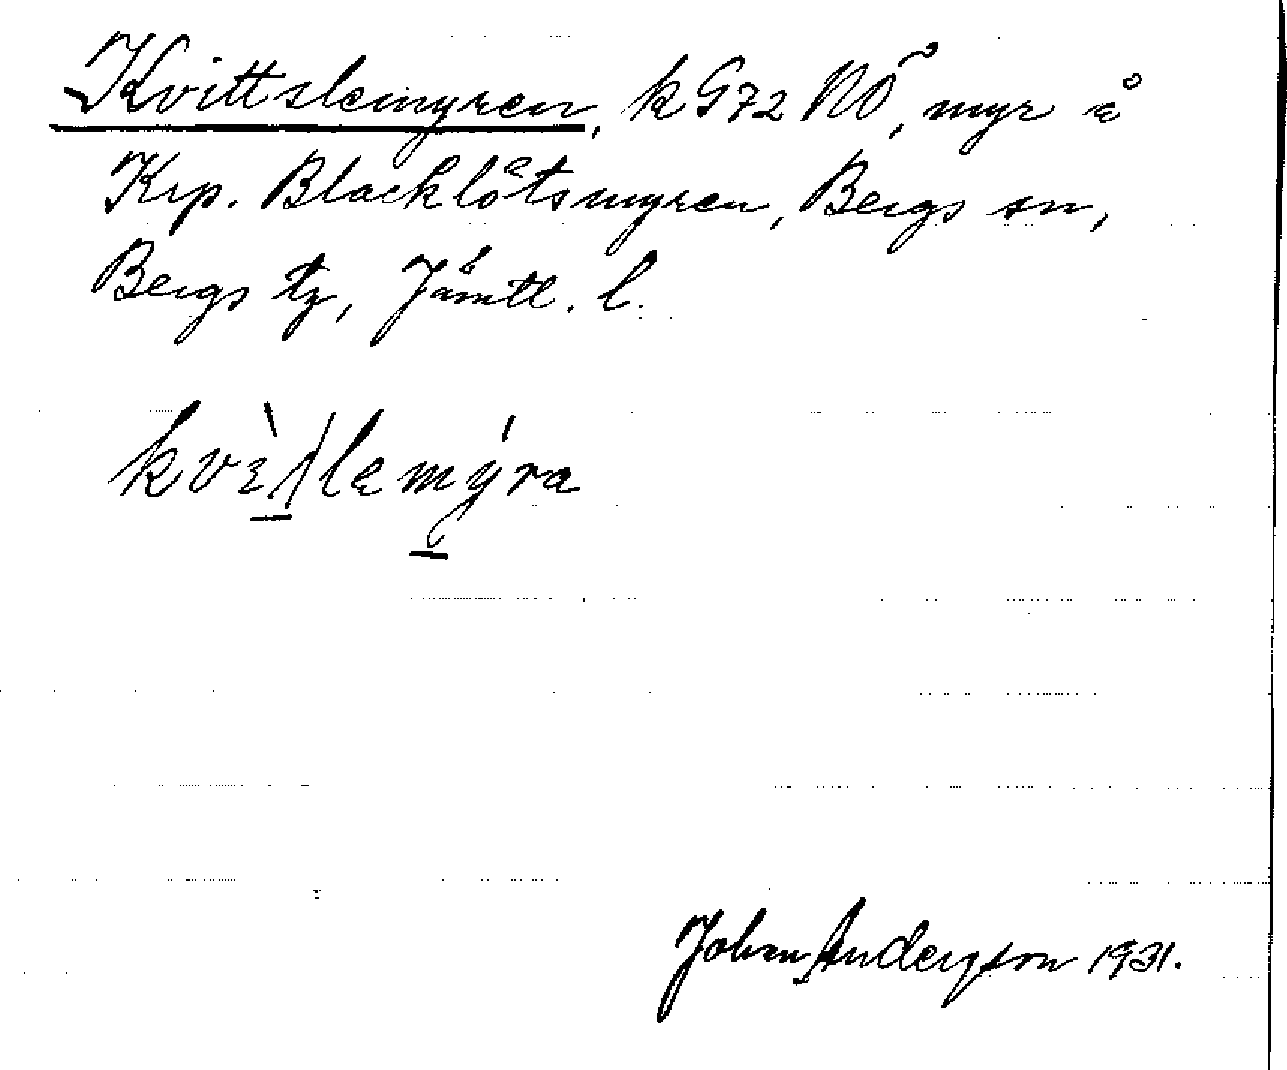 Kvittslemyren, k G72 NÖ, myr å
Krp. Blacklötsmyren, Bergs sn,
Bergs tg, Jämtl. l.
Johan Andersson 1931.